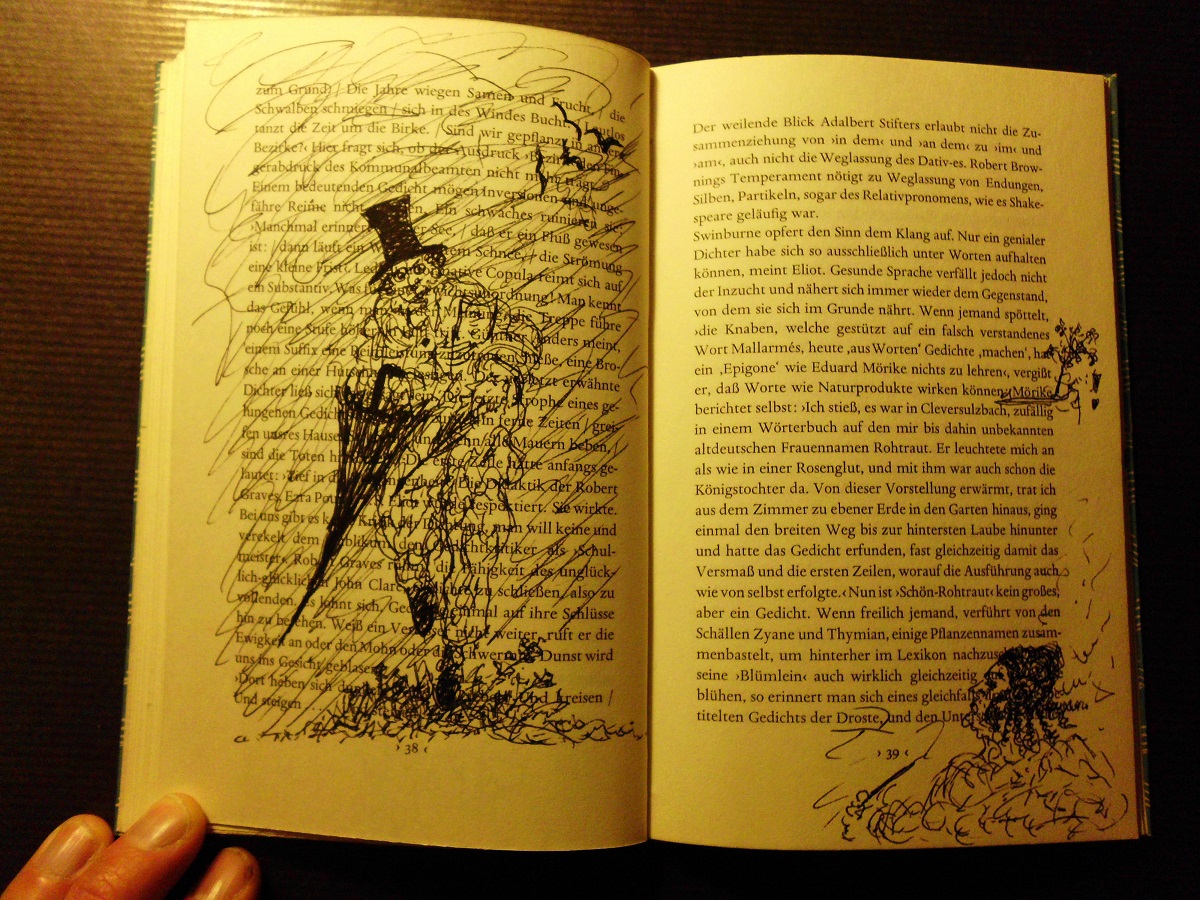 zum Grund) / Die Jahre wiegen Samen und Frucht / die
Schwalben schmiegen / sich in des Windes Bucht. / Lautlos
tanzt die Zeit um die Birke. / Sind wir gepflanzt in andere
Bezirke?‹ Hier fragt sich, ob der Ausdruck ›Bezirk‹ den Fin-
gerabdruck des Kommunalbeamten nicht mehr trägt.
Einem bedeutenden Gedicht mögen Inversionen und unge-
fähre Reime nicht Ein schwaches ruinieren sie:
›Manchmal erinnert der See, / daß er ein Fluß gewesen
ist: / dann läuft ein Schnee, / die Strömung
eine kleine Frist‹. Copula reimt sich auf
ein Substantiv. Was für eine Man kennt
das Gefühl, wenn man in der Meinung, die Treppe führe
noch eine Stufe höher, Günther Anders meint,
einem Suffix eine hieße, eine Bro-
sche an einer erwähnte
Dichter ließ sich letzte Strophe eines ge-
lungenen Gedichts ›In ferne Zeiten / grei-
fen unsres Hauses und wenn alle Mauern beben, /
sind die Toten Die erste Zeile hatte anfangs ge-
lautet: ›Tief in die Die Didaktik der Robert
Graves, Ezra Pound, Eliot wurde respektiert. Sie wirkte.
Bei uns gibt es keine Kritik der Dichtung, man will keine und
verekelt dem Publikum den Gedichtkritiker als ›Schul-
meister‹. Robert Graves die Fähigkeit des unglück-
lich-glücklichen John Clare, zu schließen, also zu
vollenden. Es lohnt sich, Gedichte einmal auf ihre Schlüsse
hin zu besehen. Weiß ein Verfasser nicht weiter, ruft er die
Ewigkeit an oder den Mohn oder der Schwermut Dunst wird
uns ins Gesicht geblasen
›Dort heben sich Und kreisen /
Und steigen . . .
› 38 ‹
Der weilende Blick Adalbert Stifters erlaubt nicht die Zu-
sammenziehung von ›in dem‹ und ›an dem‹ zu ›im‹ und
›am‹, auch nicht die Weglassung des Dativ-es. Robert Brow-
nings Temperament nötigt zu Weglassung von Endungen,
Silben, Partikeln, sogar des Relativpronomens, wie es Shake-
speare geläufig war.
Swinburne opfert den Sinn dem Klang auf. Nur ein genialer
Dichter habe sich so ausschließlich unter Worten aufhalten
können, meint Eliot. Gesunde Sprache verfällt jedoch nicht
der Inzucht und nähert sich immer wieder dem Gegenstand,
von dem sie sich im Grunde nährt. Wenn jemand spöttelt,
›die Knaben, welche gestützt auf ein falsch verstandenes
Wort Mallarmés, heute ‚aus Worten‘ Gedichte ‚machen‘, hat
ein ‚Epigone‘ wie Eduard Mörike nichts zu lehren‹, vergißt
er, daß Worte wie Naturprodukte wirken können. Mörike
berichtet selbst: ›Ich stieß, es war in Cleversulzbach, zufällig
in einem Wörterbuch auf den mir bis dahin unbekannten
altdeutschen Frauennamen Rohtraut. Er leuchtete mich an
als wie in einer Rosenglut, und mit ihm war auch schon die
Königstochter da. Von dieser Vorstellung erwärmt, trat ich
aus dem Zimmer zu ebener Erde in den Garten hinaus, ging
einmal den breiten Weg bis zur hintersten Laube hinunter
und hatte das Gedicht erfunden, fast gleichzeitig damit das
Versmaß und die ersten Zeilen, worauf die Ausführung auch
wie von selbst erfolgte.‹ Nun ist ›Schön-Rohtraut‹ kein großes,
aber ein Gedicht. Wenn freilich jemand, verführt von den
Schällen Zyane und Thymian, einige Pflanzennamen zusam-
menbastelt, um hinterher im Lexikon
seine ›Blümlein‹ auch wirklich gleichzeitig
blühen, so erinnert man sich eines gleichfalls
titelten Gedichts der Droste, und den
› 39 ‹